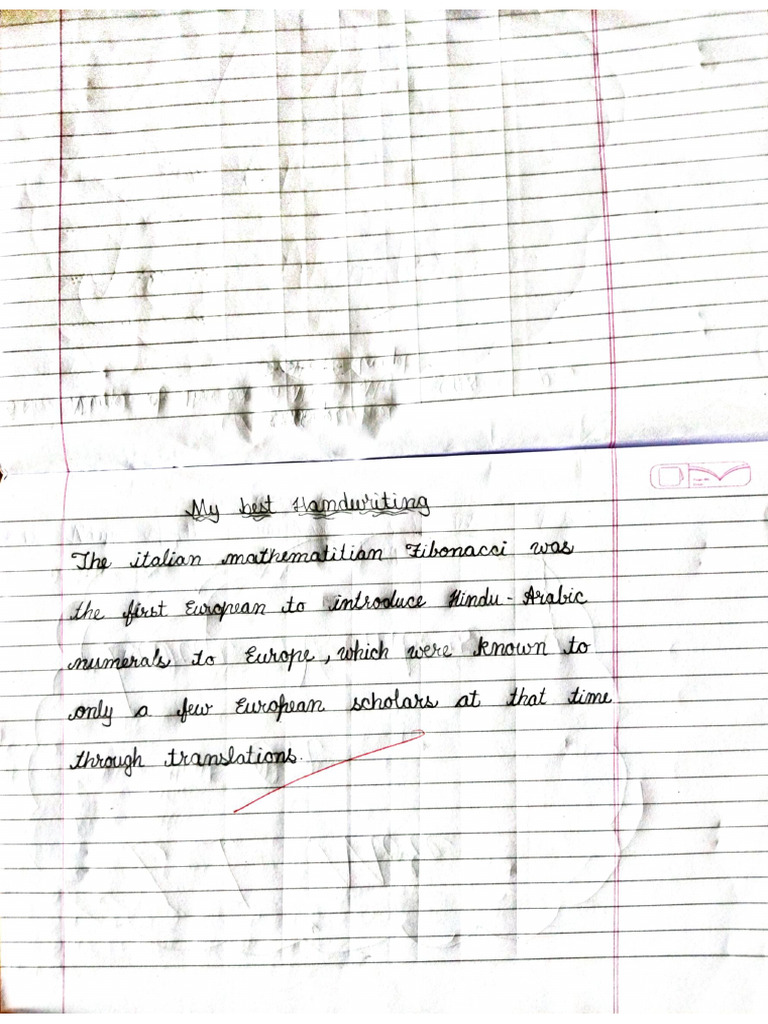 My best Handwriting
The italian mathematitian Fibonacci was
the first European to introduce Hindu-Arabic
numerals to Europe, which were known to
only a few European scholars at that time
through translations.